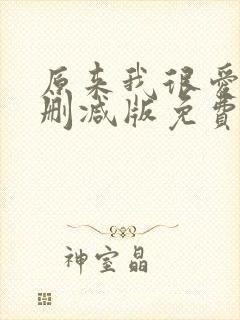 原来我很爱
删减版免费
神室晶